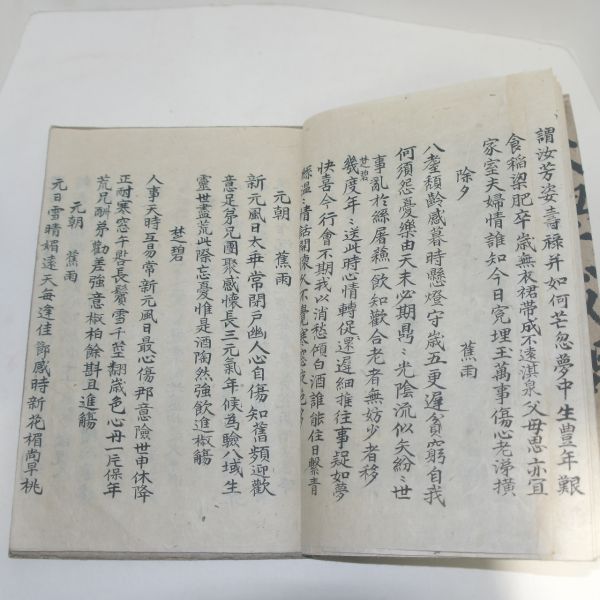 謂汝芳姿壽祿并如何芒忽夢中生豊年艱
食稲粱肥卒歲無衣裙帶成不遠淇泉父母思亦宜
家室夫婦情誰知今日完埋玉萬事傷心老淨橫
除夕 蕉雨
八耋頹齡感暮時懸燈守歲五更遲貧窮自我
何須怨憂樂由天未必期鼎〻光陰流似矢紛〻世
事亂於絲屠蘓一飲知歡合老者無妨少者移
楚碧
幾度年〻送此時心情轉促還遲細推往事疑如夢
快喜今行會不期我以消愁傾白酒誰能住日繫青
絲溫〻情話關懷
元朝 蕉雨
新元風日太垂常閉戸幽人心自傷知舊頻迎歡
意足弟兄團聚感懷長三元氣年候爲驗八域生
靈世盡荒此際忘憂惟是酒陶然強飮進椒觴
楚碧
人事天時互易常新元風日最心傷那意險世申休降
正耐寒窓午咎長鬢雪千莖翻歲色心丹一片保年
荒兄酬弟勸差強意椒柏餘斟且進觴
元朝 蕉雨
元日雪晴媚遠天每逢佳節感時新花楣尚早桃